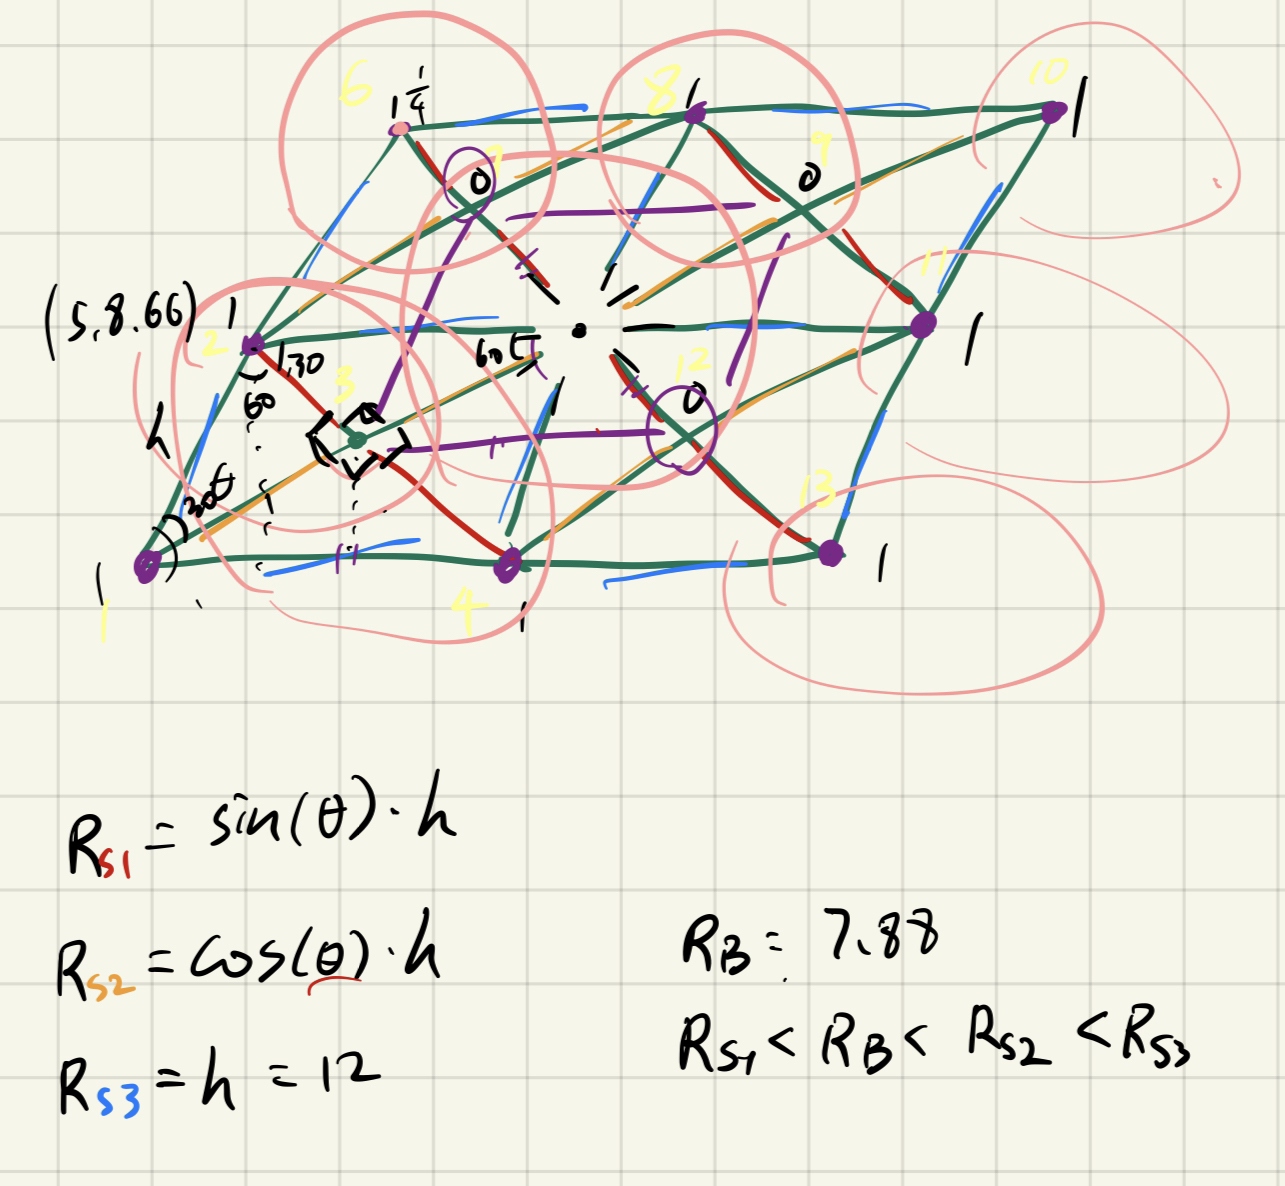 6
1
1/4
8
1
10
1
7
0
9
0
(5,8.66)
1
2
1,30
60
3
60
12
0
11
1
h
30
θ
13
1
1
1
4
1
R_S1 = sin(θ)·h
R_S2 = cos(θ)·h
R_S3 = h = 12
R_B = 7.88
R_S1 < R_B < R_S2 < R_S3